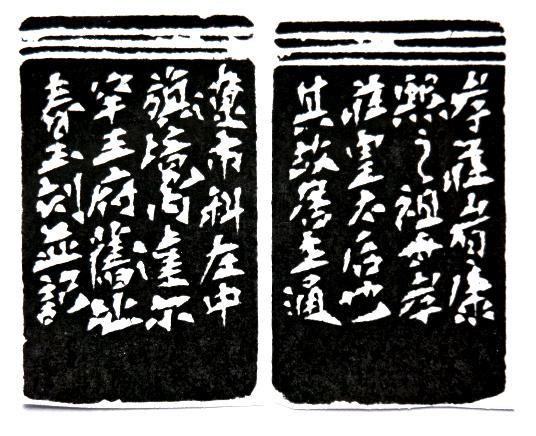 孝莊者康
熙之祖母孝
莊皇太后也
其故居在通
遼市科左中
旗境內達爾
罕王府舊址
春玉刻並記